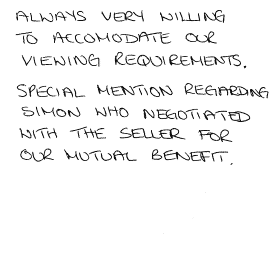 ALWAYS VERY WILLING
TO ACCOMODATE OUR
VIEWING REQUIREMENTS.
SPECIAL MENTION REGARDING
SIMON WHO NEGOTIATED
WITH THE SELLER FOR
OUR MUTUAL BENEFIT.